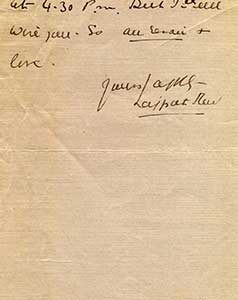 at 4-30 P.m. But I shall
wire you. So au revoir &
love.
Yours affly
Lajpat Rai